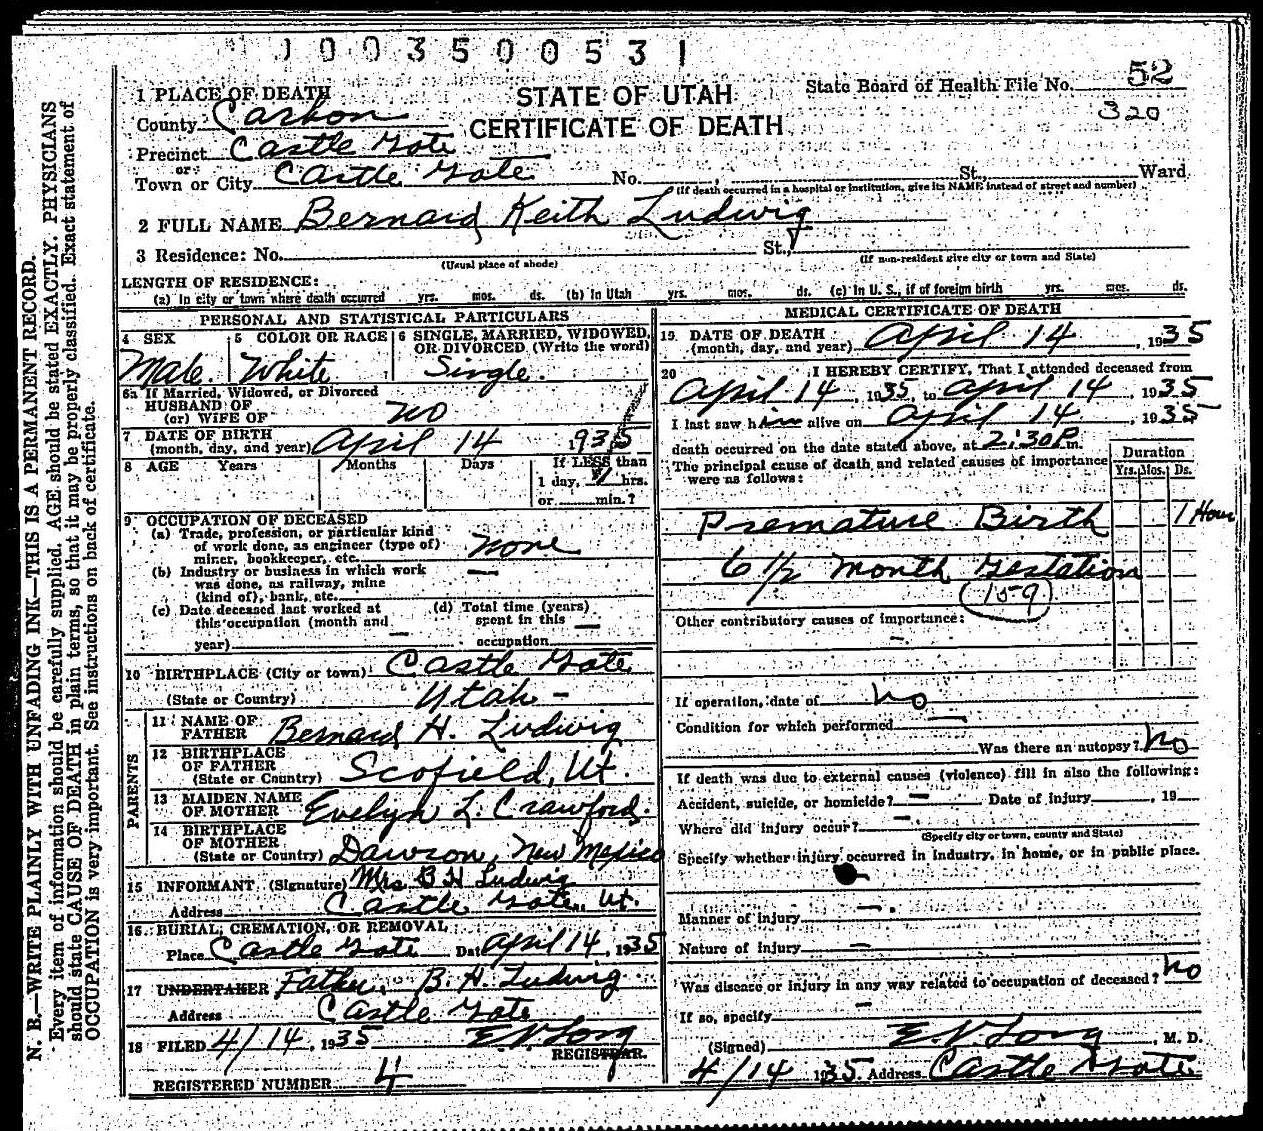 1003500531
52
State Board of Health File No.
320
STATE OF UTAH
CERTIFICATE OF DEATH
1 PLACE OF DEATH
County Carbon
Precinct Castle Gate
or
Town or City Castle Gate No. , St., Ward
(If death occurred in a hospital or institution, give its NAME instead of street and number)
2 FULL NAME Bernard Keith Ludwig
3 Residence: No. St.,
(Usual place of abode) (If non-resident give city or town and State)
LENGTH OF RESIDENCE:
(a) In city or town where death occurred yrs. mos. ds. (b) In Utah yrs. mos. ds. (c) In U. S., if of foreign birth yrs. mos. ds.
PERSONAL AND STATISTICAL PARTICULARS
4 SEX 5 COLOR OR RACE 6 SINGLE, MARRIED, WIDOWED,
OR DIVORCED (Write the word)
Male White Single.
6a If Married, Widowed, or Divorced
HUSBAND OF
(or) WIFE OF no
7 DATE OF BIRTH
(month, day, and year) April 14 1935
8 AGE Years Months Days If LESS than
1 day, 1 hrs.
or min.?
9 OCCUPATION OF DECEASED
(a) Trade, profession, or particular kind
of work done, as engineer (type of)
miner, bookkeeper, etc. none
(b) Industry or business in which work
was done, as railway, mine
(kind of), bank, etc. —
(c) Date deceased last worked at
this occupation (month and
year) —
(d) Total time (years)
spent in this
occupation —
10 BIRTHPLACE (City or town) Castle Gate
(State or Country) Utah -
PARENTS
11 NAME OF
FATHER Bernard H. Ludwig
12 BIRTHPLACE
OF FATHER
(State or Country) Scofield, Ut.
13 MAIDEN NAME
OF MOTHER Evelyn L. Crawford.
14 BIRTHPLACE
OF MOTHER
(State or Country) Dawson, New Mexico
15 INFORMANT (Signature) Mrs B H Ludwig
Address Castle Gate, Ut.
16 BURIAL, CREMATION, OR REMOVAL
Place Castle Gate Date April 14, 1935
17 UNDERTAKER Father. B. H. Ludwig
Address Castle Gate
18 FILED 4/14, 1935 E.V. Long
REGISTRAR.
REGISTERED NUMBER 4
MEDICAL CERTIFICATE OF DEATH
19 DATE OF DEATH
(month, day, and year) April 14, 1935
20 I HEREBY CERTIFY, That I attended deceased from
April 14, 1935, to April 14, 1935
I last saw him alive on April 14, 1935
death occurred on the date stated above, at 2:30 P m.
The principal cause of death and related causes of importance
were as follows:
Duration
Yrs. Mos. Ds.
Premature Birth 1 Hour
6 1/2 month Gestation
159
Other contributory causes of importance:
-
If operation, date of no
Condition for which performed —
Was there an autopsy? no
If death was due to external causes (violence) fill in also the following:
Accident, suicide, or homicide? — Date of injury , 19
Where did injury occur? —
(Specify city or town, county and State)
Specify whether injury occurred in industry, in home, or in public place.
Manner of injury —
Nature of injury —
Was disease or injury in any way related to occupation of deceased? no
If so, specify —
(Signed) E.V. Long, M. D.
4/14 1935. Address Castle Gate.
N. B.—WRITE PLAINLY WITH UNFADING INK—THIS IS A PERMANENT RECORD.
Every item of information should be carefully supplied. AGE should be stated EXACTLY. PHYSICIANS
should state CAUSE OF DEATH in plain terms, so that it may be properly classified. Exact statement of
OCCUPATION is very important. See instructions on back of certificate.